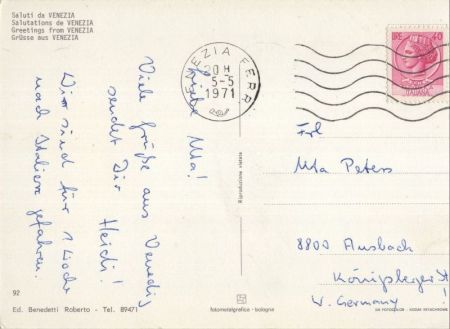 Saluti da VENEZIA
Salutations de VENEZIA
Greetings from VENEZIA
Grüsse aus VENEZIA
VENEZIA FERR.
20 H
5-5
1971
LIRE 40
ITALIANE
Liebe Uta!
Viele Grüße aus Venedig
sendet Dir
Heidi!
Wir sind für 1 Woche
nach Italien gefahren.
Frl
Uta Peters
8800 Ansbach
Königsberger St
W. Germany!
Riproduzione vietata
92
Ed. Benedetti Roberto - Tel. 89471
fotometalgrafica - bologna
DA FOTOCOLOR - KODAK EKTACHROME